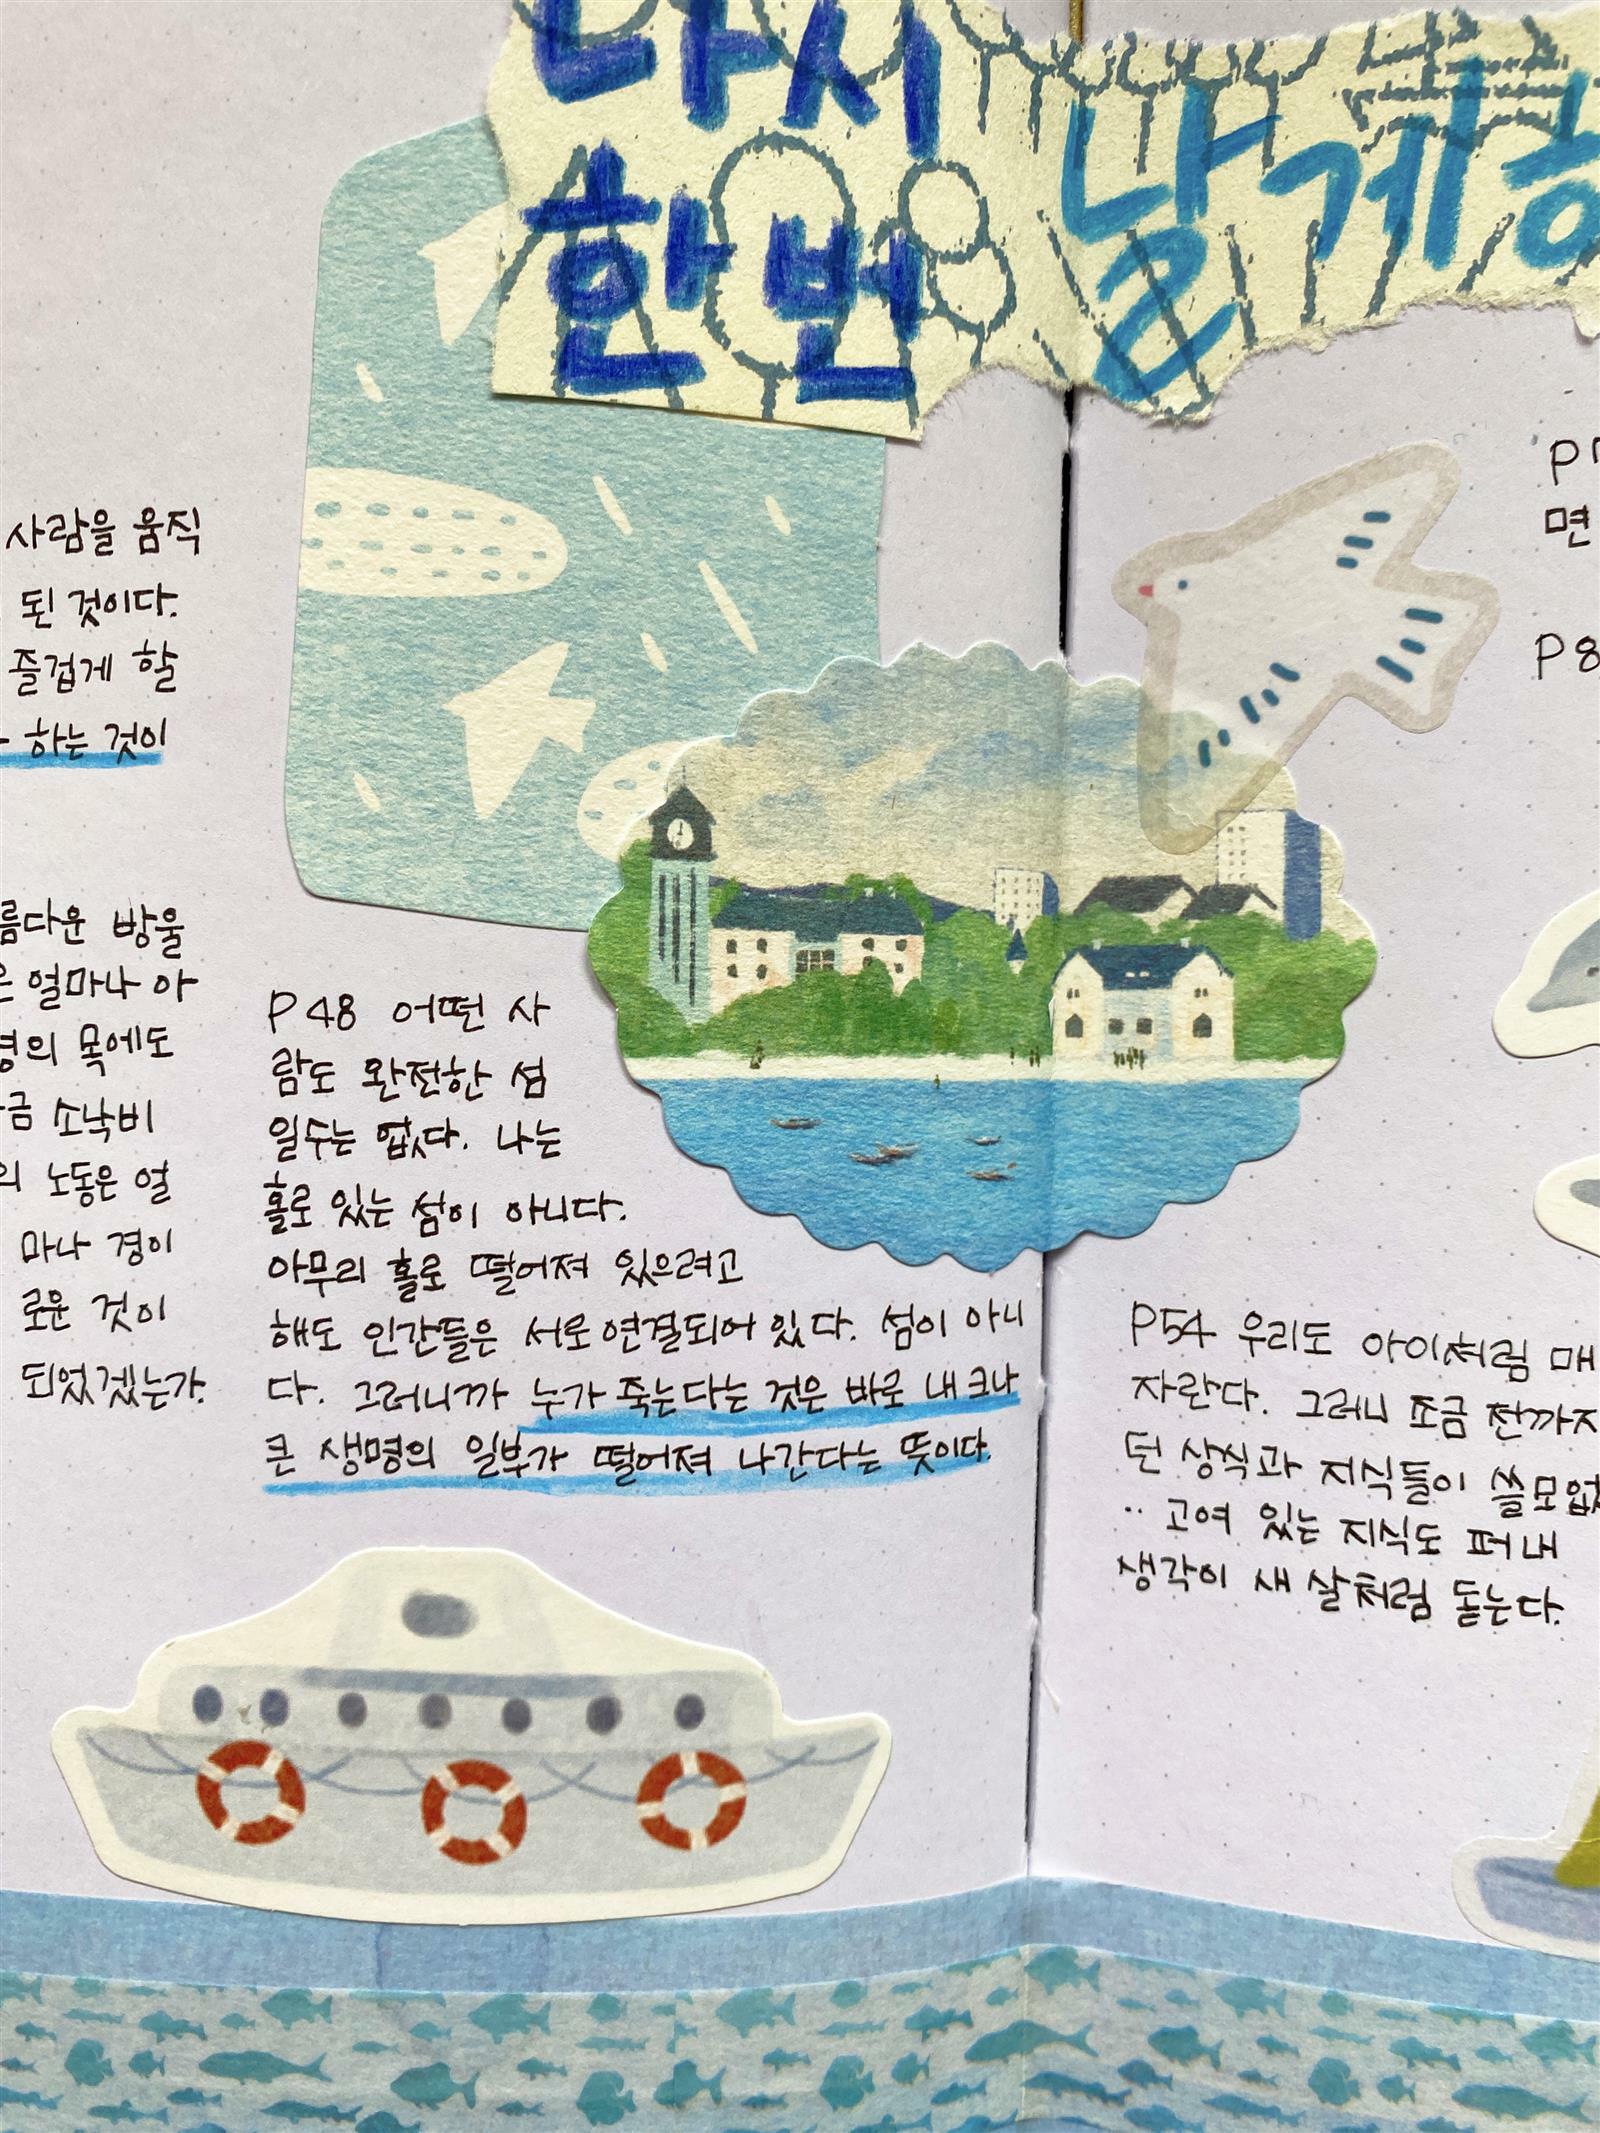 다시
한번
날게 하
사람을 움직
된 것이다.
즐겁게 할
하는 것이
름다운 방울
은 얼마나 아
명의 목에도
금 소낙비
의 노동은 얼
마나 경이
로운 것이
되었겠는가.
P48 어떤 사
람도 완전한 섬
일수는 없다. 나는
홀로 있는 섬이 아니다.
아무리 홀로 떨어져 있으려고
해도 인간들은 서로 연결되어 있다. 섬이 아니
다. 그러니까 누가 죽는다는 것은 바로 내 크나
큰 생명의 일부가 떨어져 나간다는 뜻이다.
면
P8
P54 우리도 아이처럼 매
자란다. 그러니 조금 전까지
던 상식과 지식들이 쓸모없
.. 고여 있는 지식도 퍼내
생각이 새 살처럼 돋는다.